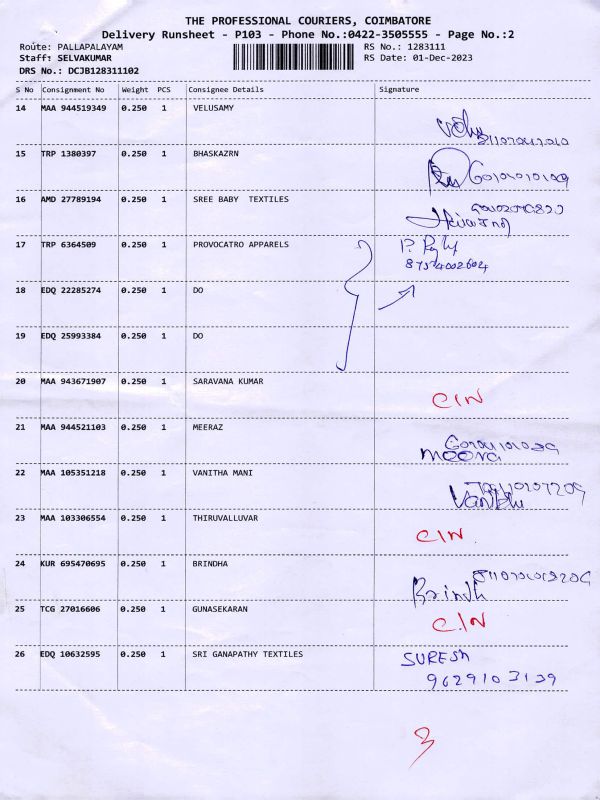 THE PROFESSIONAL COURIERS, COIMBATORE
Delivery Runsheet - P103 - Phone No.:0422-3505555 - Page No.:2
Route: PALLAPALAYAM RS No.: 1283111
Staff: SELVAKUMAR RS Date: 01-Dec-2023
DRS No.: DCJB128311102
S No Consignment No Weight PCS Consignee Details Signature
14 MAA 944519349 0.250 1 VELUSAMY
15 TRP 1380397 0.250 1 BHASKAZRN
16 AMD 27789194 0.250 1 SREE BABY TEXTILES
17 TRP 6364509 0.250 1 PROVOCATRO APPARELS
18 EDQ 22285274 0.250 1 DO
19 EDQ 25993384 0.250 1 DO
20 MAA 943671907 0.250 1 SARAVANA KUMAR CIN
21 MAA 944521103 0.250 1 MEERAZ
22 MAA 105351218 0.250 1 VANITHA MANI
23 MAA 103306554 0.250 1 THIRUVALLUVAR CIN
24 KUR 695470695 0.250 1 BRINDHA Brindh
25 TCG 27016606 0.250 1 GUNASEKARAN C.IN
26 EDQ 10632595 0.250 1 SRI GANAPATHY TEXTILES SURESH
9629103139
3